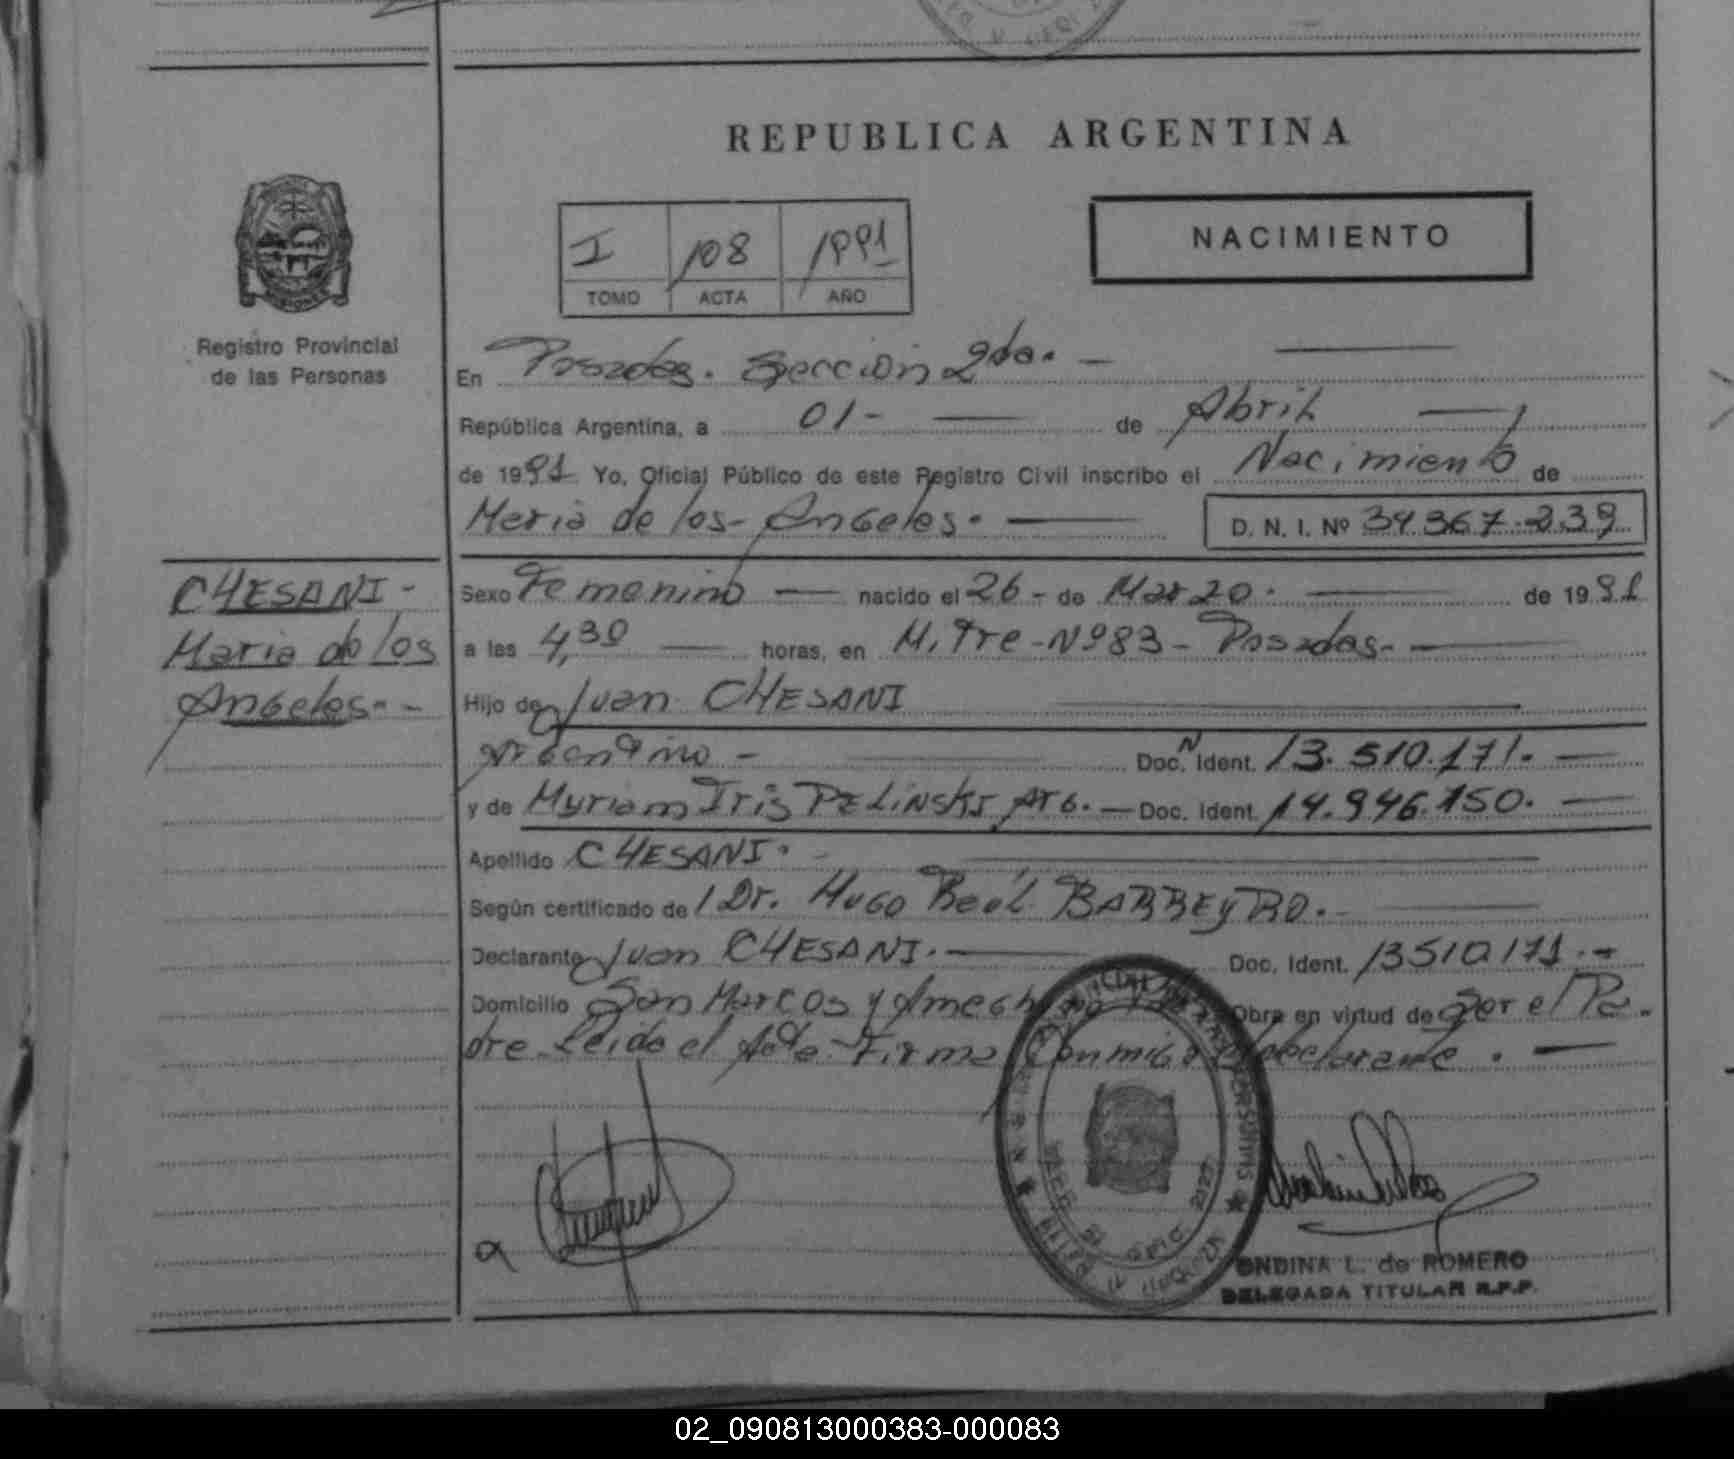 REPUBLICA ARGENTINA
I 108 1991
TOMO ACTA AÑO
NACIMIENTO
Registro Provincial
de las Personas
En Posadas. Sección 2da. -
República Argentina, a 01- de Abril
de 1991 Yo, Oficial Público de este Registro Civil inscribo el Nacimiento de
Maria de los- Angeles. D. N. I. Nº 34.367.239
CHESANI -
Maria de los
Angeles.-
Sexo Femenino nacido el 26 - de Marzo. de 1991
a las 4,30 horas, en Mitre - Nº 83 - Posadas.
Hijo de Juan CHESANI
Argentino - Doc. Ident. 13.510.171.
y de Myriam Iris PELINSKI Arg. - Doc. Ident. 14.946.150.
Apellido CHESANI.
Según certificado de / Dr. Hugo Raúl BARREYRO.
Declarante Juan CHESANI. Doc. Ident. 13510171.-
Domicilio San Marcos y Obra en virtud de Ser el Pa-
dre. Leida el Acta Firma Conmigo Declarante.
a
ONDINA L. de ROMERO
DELEGADA TITULAR R.P.P.
02_090813000383-000083